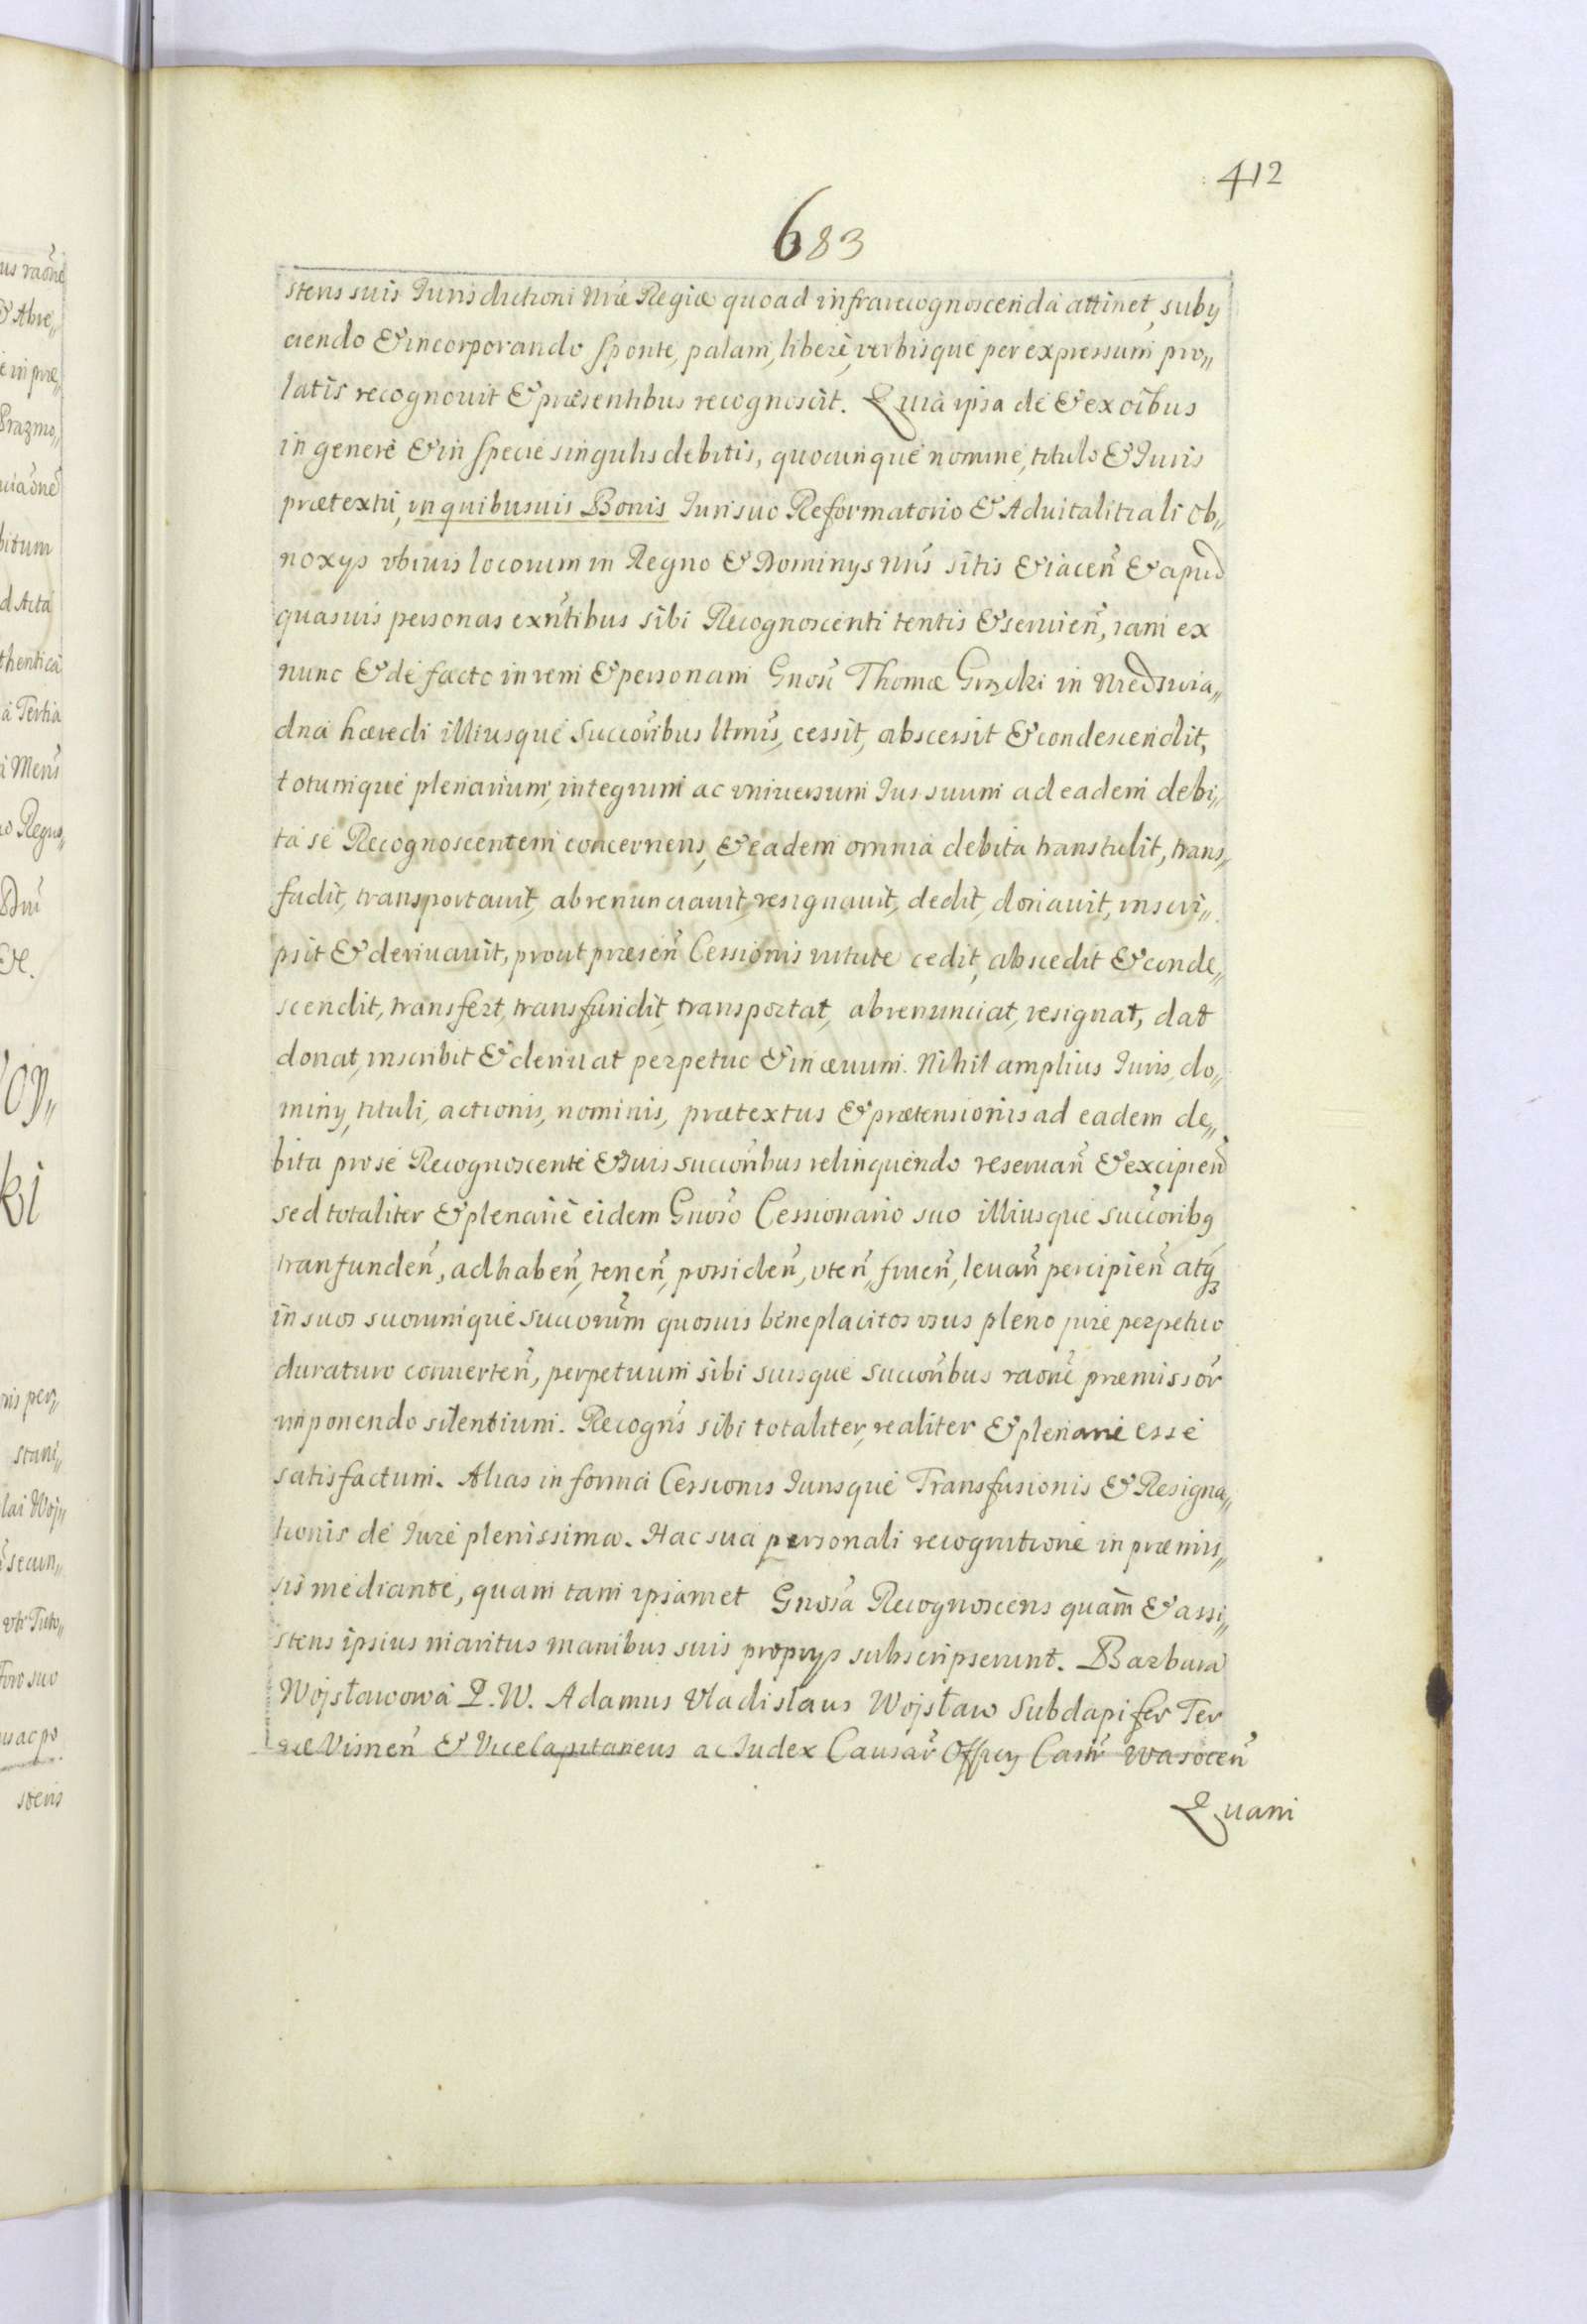 412
683
stens suis Jurisdictioni Nr̃æ Regiæ quoad infrarecognoscenda attinet, suby
ciendo & incorporando sponte, palam, liberè, verbisque per expressum pro„
latis recognovit & præsentibus recognoscit. Quia ipsa de & ex oĩbus
in genere & in specie singulis debitis, quocunque nomine, titulo & Juris
prætextu, in quibusuis Bonis Juri suo Reformatorio & Aduitalitiali ob„
noxys vbiuis locorum in Regno & Dominys Nr̃is sitis & iaceñ & apud
quasuis personas exñtibus sibi Recognoscenti tentis & seruieñ, iam ex
nunc & de facto in rem & personam Gnosi Thomæ in Niedzwia„
dna hæredi illiusque Succoribus ltmis, cessit, abscessit & condescendit,
totumque plenarium, integrum ac vniuersum Jus suum ad eadem debi„
ta se Recognoscentem concernens, & eadem omnia debita transtulit, trans„
fudit, transportauit, abrenunciauit, resignauit, dedit, donauit, inscri„
psit & deriuauit, prout præseñ Cessionis vutute cedit, abscedit & conde„
scendit, transfert, transfundit, transportat, abrenunciat, resignat, dat
donat, inscribit & deriuat perpetuo & in æuum. Nihil amplius Juris, do„
miny, tituli, actionis, nominis, prætextus & prætensionis ad eadem de„
bita pro se Recognoscente & suis succoribus relinquendo reseruañ & excipieñ
sed totaliter & plenariè eidem Gnoso Cessionario suo illiusque succoribq
tranfundeñ, ad habeñ, teneñ, possideñ, vteñ, frueñ, leuañ percipieñ atq
in suos suorumque succorum quosuis beneplacitos vsus pleno jure perpetuo
duraturo conuerteñ, perpetuum sibi suisque succoribus raõne præmissor̃
imponendo silentium. Recogñs sibi totaliter, realiter & plenarie esse
satisfactum. Alias in forma Cessionis Jurisque Transfusionis & Resigna„
tionis de Jure plenissima. Hac sua personali recognitione in præmis„
sis mediante, quam tam ipsamet Gnosa Recognoscens quam & assi„
stens ipsius maritus manibus suis proprys subscripserunt. Barbara
Wojsławowa P. W. Adamus Vladislaus Wojsław Subdapifer Ter
ræ Visneñ & ViceCapitaneus ac Judex Causar̃ Officy Castr̃ Wasoceñ
Quam